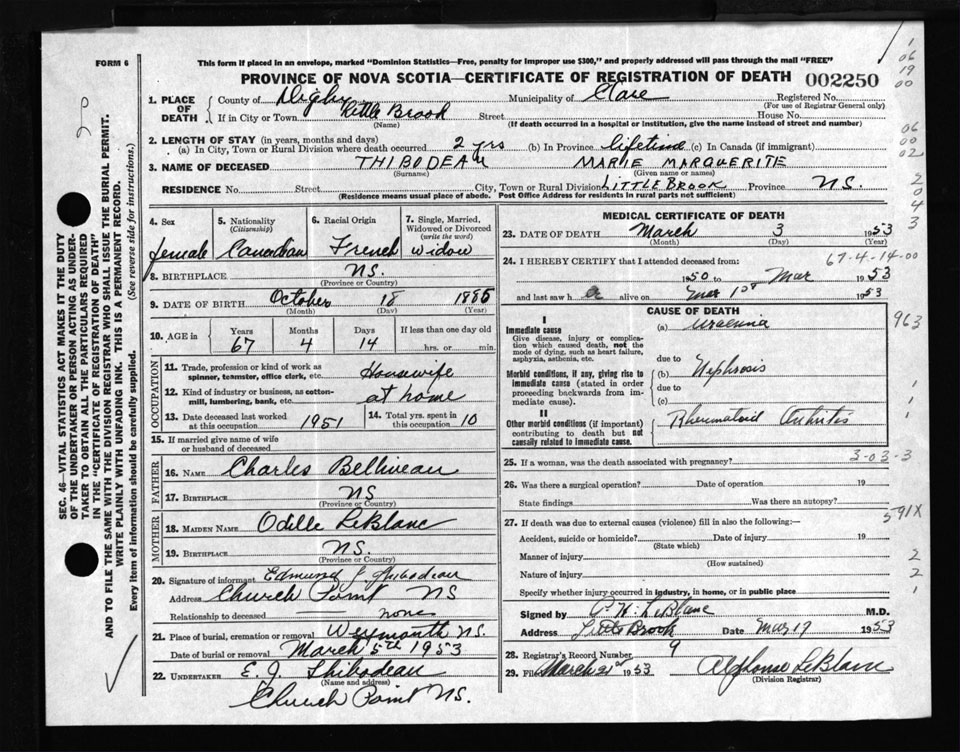 FORM 6
This form if placed in an envelope, marked "Dominion Statistics—Free, penalty for improper use $300," and properly addressed will pass through the mail "FREE"
PROVINCE OF NOVA SCOTIA—CERTIFICATE OF REGISTRATION OF DEATH 002250
1. PLACE OF DEATH
County of Digby Municipality of Clare Registered No.
(For use of Registrar General only)
If in City or Town Little Brook Street House No.
(Name) (If death occurred in a hospital or institution, give the name instead of street and number)
2. LENGTH OF STAY (in years, months and days)
(a) In City, Town or Rural Division where death occurred 2 yrs (b) In Province lifetime (c) In Canada (if immigrant)
3. NAME OF DECEASED THIBODEAU MARIE MARGUERITE
(Surname) (Given name or names)
RESIDENCE No. Street City, Town or Rural Division LITTLE BROOK Province NS.
(Residence means usual place of abode. Post Office Address for residents in rural parts not sufficient)
4. Sex 5. Nationality (Citizenship) 6. Racial Origin 7. Single, Married, Widowed or Divorced (write the word)
female Canadian French widow
8. BIRTHPLACE NS.
(Province or Country)
9. DATE OF BIRTH October 18 1885
(Month) (Day) (Year)
10. AGE in Years Months Days If less than one day old
67 4 14 hrs. or min.
OCCUPATION
11. Trade, profession or kind of work as spinner, teamster, office clerk, etc. Housewife
12. Kind of industry or business, as cotton-mill, lumbering, bank, etc. at home
13. Date deceased last worked at this occupation 1951 14. Total yrs. spent in this occupation 10
15. If married give name of wife or husband of deceased
FATHER
16. NAME Charles Belliveau
17. BIRTHPLACE NS
(Province or Country)
MOTHER
18. MAIDEN NAME Odille LeBlanc
19. BIRTHPLACE NS.
(Province or Country)
20. Signature of informant Edmund J Thibodeau
Address Church Point NS
Relationship to deceased none
21. Place of burial, cremation or removal Weymouth NS.
Date of burial or removal March 5th 1953
22. UNDERTAKER E. J. Thibodeau
(Name and address)
Church Point NS.
MEDICAL CERTIFICATE OF DEATH
23. DATE OF DEATH March 3 1953
(Month) (Day) (Year)
67-4-14-00
24. I HEREBY CERTIFY that I attended deceased from:
1950 to Mar 1953
and last saw h er alive on Mar 1st 1953
CAUSE OF DEATH
I
Immediate cause
Give disease, injury or complication which caused death, not the mode of dying, such as heart failure, asphyxia, asthenia, etc.
(a) Uraemia
963
due to
Morbid conditions, if any, giving rise to immediate cause (stated in order proceeding backwards from immediate cause).
(b) Nephrosis
due to
(c)
II
Other morbid conditions (if important) contributing to death but not causally related to immediate cause.
Rheumatoid Arthritis
25. If a woman, was the death associated with pregnancy? 3-03-3
26. Was there a surgical operation? Date of operation 19
State findings Was there an autopsy?
591X
27. If death was due to external causes (violence) fill in also the following:—
Accident, suicide or homicide? Date of injury 19
(State which)
Manner of injury
(How sustained)
Nature of injury
Specify whether injury occurred in industry, in home, or in public place
Signed by P. H. LeBlanc M.D.
Address Little Brook Date Mar 17 1953
28. Registrar's Record Number 9
29. Filed March 21st 1953 Alphonse LeBlanc
(Division Registrar)
1
06
19
00
06
00
02
2
0
4
3
1
1
2
2
1
SEC. 46—VITAL STATISTICS ACT MAKES IT THE DUTY
OF THE UNDERTAKER OR PERSON ACTING AS UNDERTAKER TO OBTAIN ALL THE PARTICULARS REQUIRED
IN THE "CERTIFICATE OF REGISTRATION OF DEATH"
AND TO FILE THE SAME WITH THE DIVISION REGISTRAR WHO SHALL ISSUE THE BURIAL PERMIT.
WRITE PLAINLY WITH UNFADING INK. THIS IS A PERMANENT RECORD.
Every item of information should be carefully supplied. (See reverse side for instructions.)